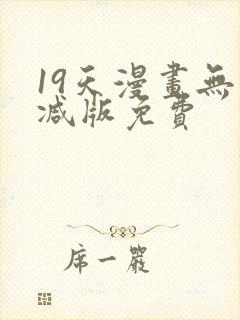 19天漫畫無
减版免費
席一嚴